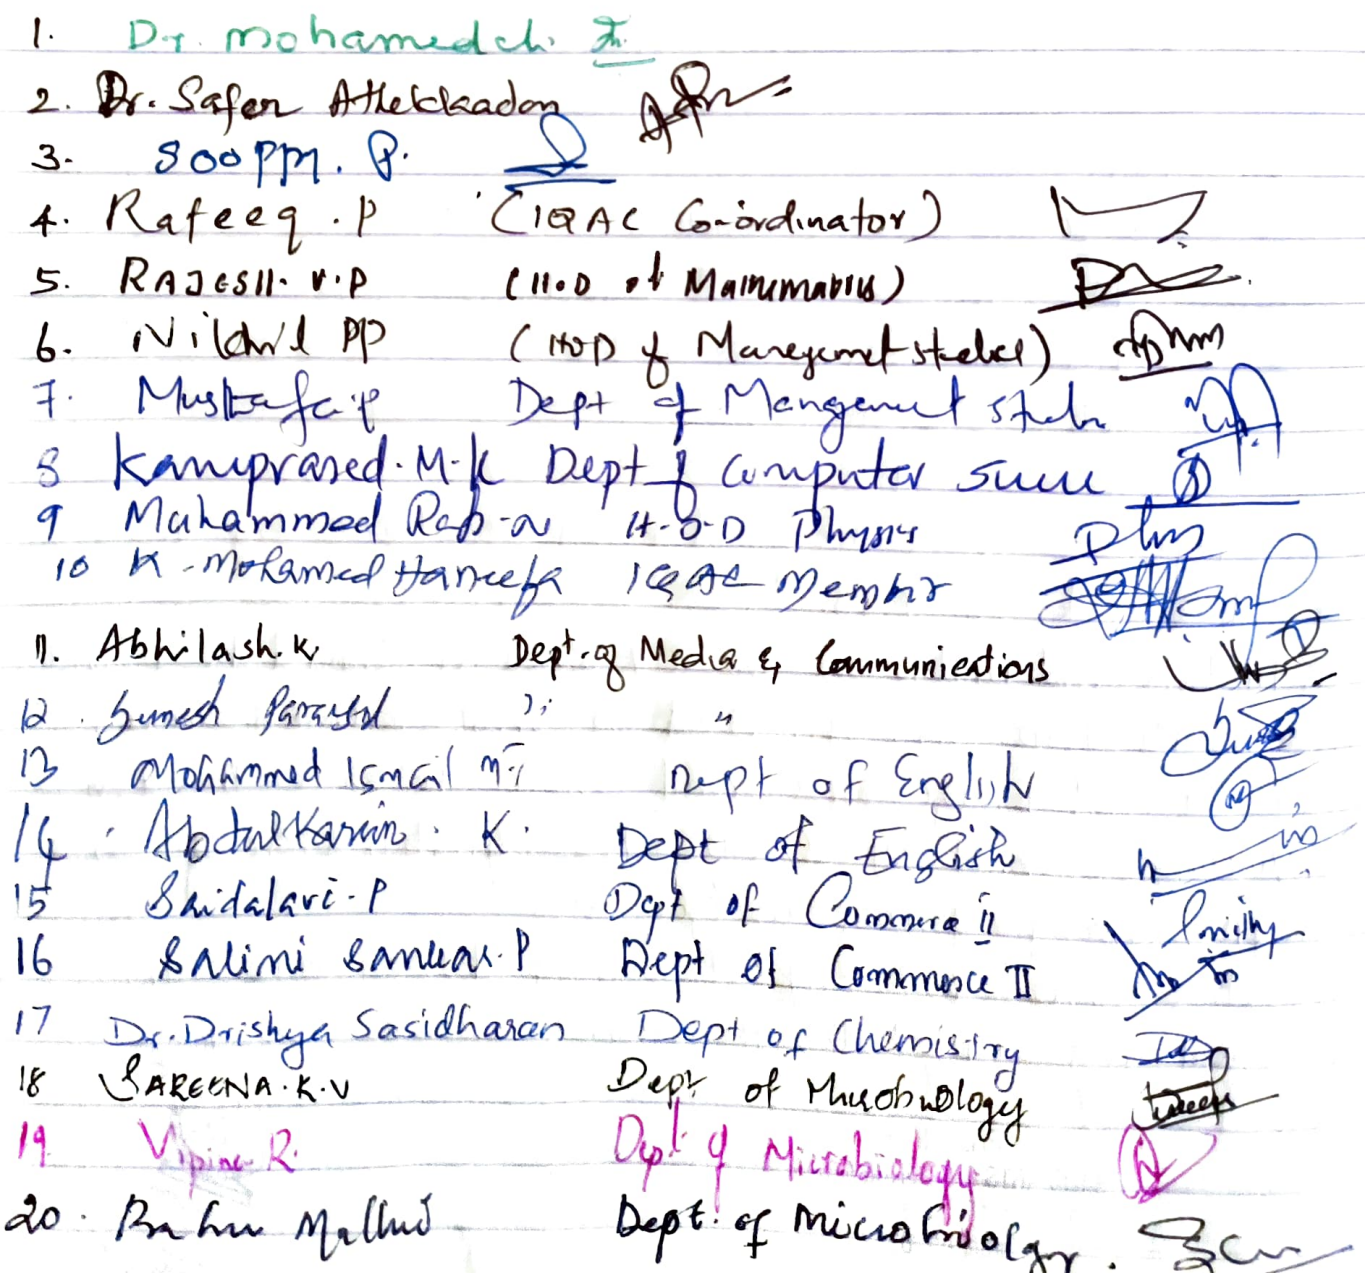 1. Dr. Mohamedch.
2. Dr. Safer Athekkadan
3. Soopm. P.
4. Rafeeq . P (IQAC Co-ordinator)
5. RAJESH. V.P (H.O.D of Mathematics)
6. Nikhil PP (HOD of Management studies)
7. Mustafa.P Dept of Management
8 Ramprased. M.K Dept of Computer
9 Muhammed H.O.D Physics
10 K. Mohamed Haneefa IQAC Member
11. Abhilash.K Dept. of Media & Communications
12. Sumesh " "
13 Mohammed Ismail M.T Dept of English
14. Abdul Karim. K. Dept of English
15 Saidalavi. P Dept of Commerce II
16 Salini Sankar. P Dept of Commerce II
17 Dr. Drishya Sasidharan Dept of Chemistry
18 SAREENA. K. V Dept of Microbiology
19 Vipina R. Dept. of Microbiology
20. Dept. of Microbiology.